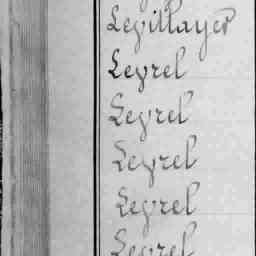 Levillayer
Leyrel
Leyrel
Leyrel
Leyrel
Leyrel